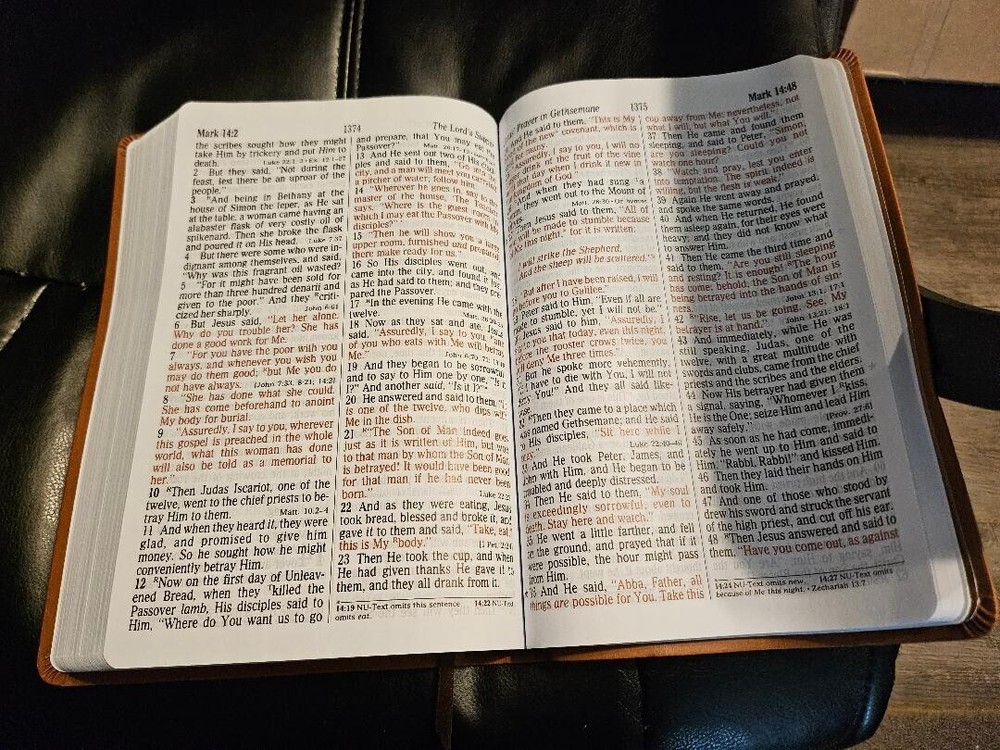 Mark 14:2
1374
The Lord's
the scribes sought how they might
take Him by trickery and put Him to
death.
2 But they said, "Not during the
feast, lest there be an uproar of the
people."
3 And being in Bethany at the
house of Simon the leper, as He sat
at the table, a woman came having an
alabaster flask of very costly oil of
spikenard. Then she broke the flask
and poured it on His head. Luke 7:37
4 But there were some who were in-
dignant among themselves, and said,
"Why was this fragrant oil wasted?
5 "For it might have been sold for
more than three hundred denarii and
given to the poor." And they criti-
cized her sharply. John 6:61
6 But Jesus said, "Let her alone.
Why do you trouble her? She has
done a good work for Me.
7 "For you have the poor with you
always, and whenever you wish you
may do them good; but Me you do
not have always. [John 7:33, 8:21; 14:2]
8 "She has done what she could.
She has come beforehand to anoint
My body for burial.
9 "Assuredly, I say to you, wherever
this gospel is preached in the whole
world, what this woman has done
will also be told as a memorial to
her."
10 Then Judas Iscariot, one of the
twelve, went to the chief priests to be-
tray Him to them. Matt. 10:2-4
11 And when they heard it, they were
glad, and promised to give him
money. So he sought how he might
conveniently betray Him.
12 Now on the first day of Unleav-
ened Bread, when they killed the
Passover lamb, His disciples said to
Him, "Where do You want us to go
and prepare, that You may eat
Passover?"
13 And He sent out two of His
ples and said to them, "Go into
city, and a man will meet you carrying
a pitcher of water; follow him.
14 "Wherever he goes in, say to
master of the house, 'The Teacher
says, "Where is the guest room
which I may eat the Passover with My
disciples?"'
15 "Then he will show you a large
upper room, furnished and prepared
there make ready for us."
16 So His disciples went out, and
came into the city, and found it just
as He had said to them; and they pre-
pared the Passover.
17 In the evening He came with the
twelve.
18 Now as they sat and ate, Jesus
said, "Assuredly, I say to you, one
of you who eats with Me will betray
Me."
19 And they began to be sorrowful
and to say to Him one by one, "Is it
I?" And another said, "Is it I?"
20 He answered and said to them, "It
is one of the twelve, who dips with
Me in the dish.
21 "The Son of Man indeed goes
just as it is written of Him, but woe
to that man by whom the Son of Man
is betrayed! It would have been good
for that man if he had never been
born." Luke 22:22
22 And as they were eating, Jesus
took bread, blessed and broke it, and
gave it to them and said, "Take, eat;
this is My body." [1 Pet. 2:24]
23 Then He took the cup, and when
He had given thanks He gave it to
them, and they all drank from it.
14:19 NU-Text omits this sentence 14:22 NU-Text
omits eat.
Prayer in Gethsemane
1375
Mark 14:48
He said to them, "This is My
of the new covenant, which is
many.
"Assuredly, I say to you, I will no
drink of the fruit of the vine
that day when I drink it new in
kingdom of God."
And when they had sung a
they went out to the Mount of
Then Jesus said to them, "All of
will be made to stumble because
Me this night, for it is written:
'I will strike the Shepherd,
And the sheep will be scattered.'
"But after I have been raised, I will
before you to Galilee."
Peter said to Him, "Even if all are
made to stumble, yet I will not be."
Jesus said to him, "Assuredly, I
to you that today, even this night,
before the rooster crows twice, you
will deny Me three times."
But he spoke more vehemently,
I have to die with You, I will not
deny You!" And they all said like-
wise.
Then they came to a place which
was named Gethsemane; and He said
to His disciples, "Sit here while I
Luke 22:40-46
And He took Peter, James, and
John with Him, and He began to be
troubled and deeply distressed.
Then He said to them, "My soul
is exceedingly sorrowful, even to
death. Stay here and watch."
He went a little farther, and fell
on the ground, and prayed that if it
were possible, the hour might pass
from Him.
And He said, "Abba, Father, all
things are possible for You. Take this
cup away from Me; nevertheless, not
what I will, but what You will."
37 Then He came and found them
sleeping, and said to Peter, "Simon,
are you sleeping? Could you not
watch one hour?
38 "Watch and pray, lest you enter
into temptation. The spirit indeed is
willing, but the flesh is weak."
39 Again He went away and prayed,
and spoke the same words.
40 And when He returned, He found
them asleep again, for their eyes were
heavy; and they did not know what
to answer Him.
41 Then He came the third time and
said to them, "Are you still sleeping
and resting? It is enough! The hour
has come; behold, the Son of Man is
being betrayed into the hands of sin-
ners. John 13:1, 17:1
42 "Rise, let us be going. See, My
betrayer is at hand." John 13:21; 18:1
43 And immediately, while He was
still speaking, Judas, one of the
twelve, with a great multitude with
swords and clubs, came from the chief
priests and the scribes and the elders.
44 Now His betrayer had given them
a signal, saying, "Whomever I kiss,
He is the One; seize Him and lead Him
away safely." [Prov. 27:6]
45 As soon as he had come, immedi-
ately he went up to Him and said to
Him, "Rabbi, Rabbi!" and kissed Him.
46 Then they laid their hands on Him
and took Him.
47 And one of those who stood by
drew his sword and struck the servant
of the high priest, and cut off his ear.
48 Then Jesus answered and said to
them, "Have you come out, as against
14:24 NU-Text omits new. 14:27 NU-Text omits
because of Me this night. • Zechariah 13:7